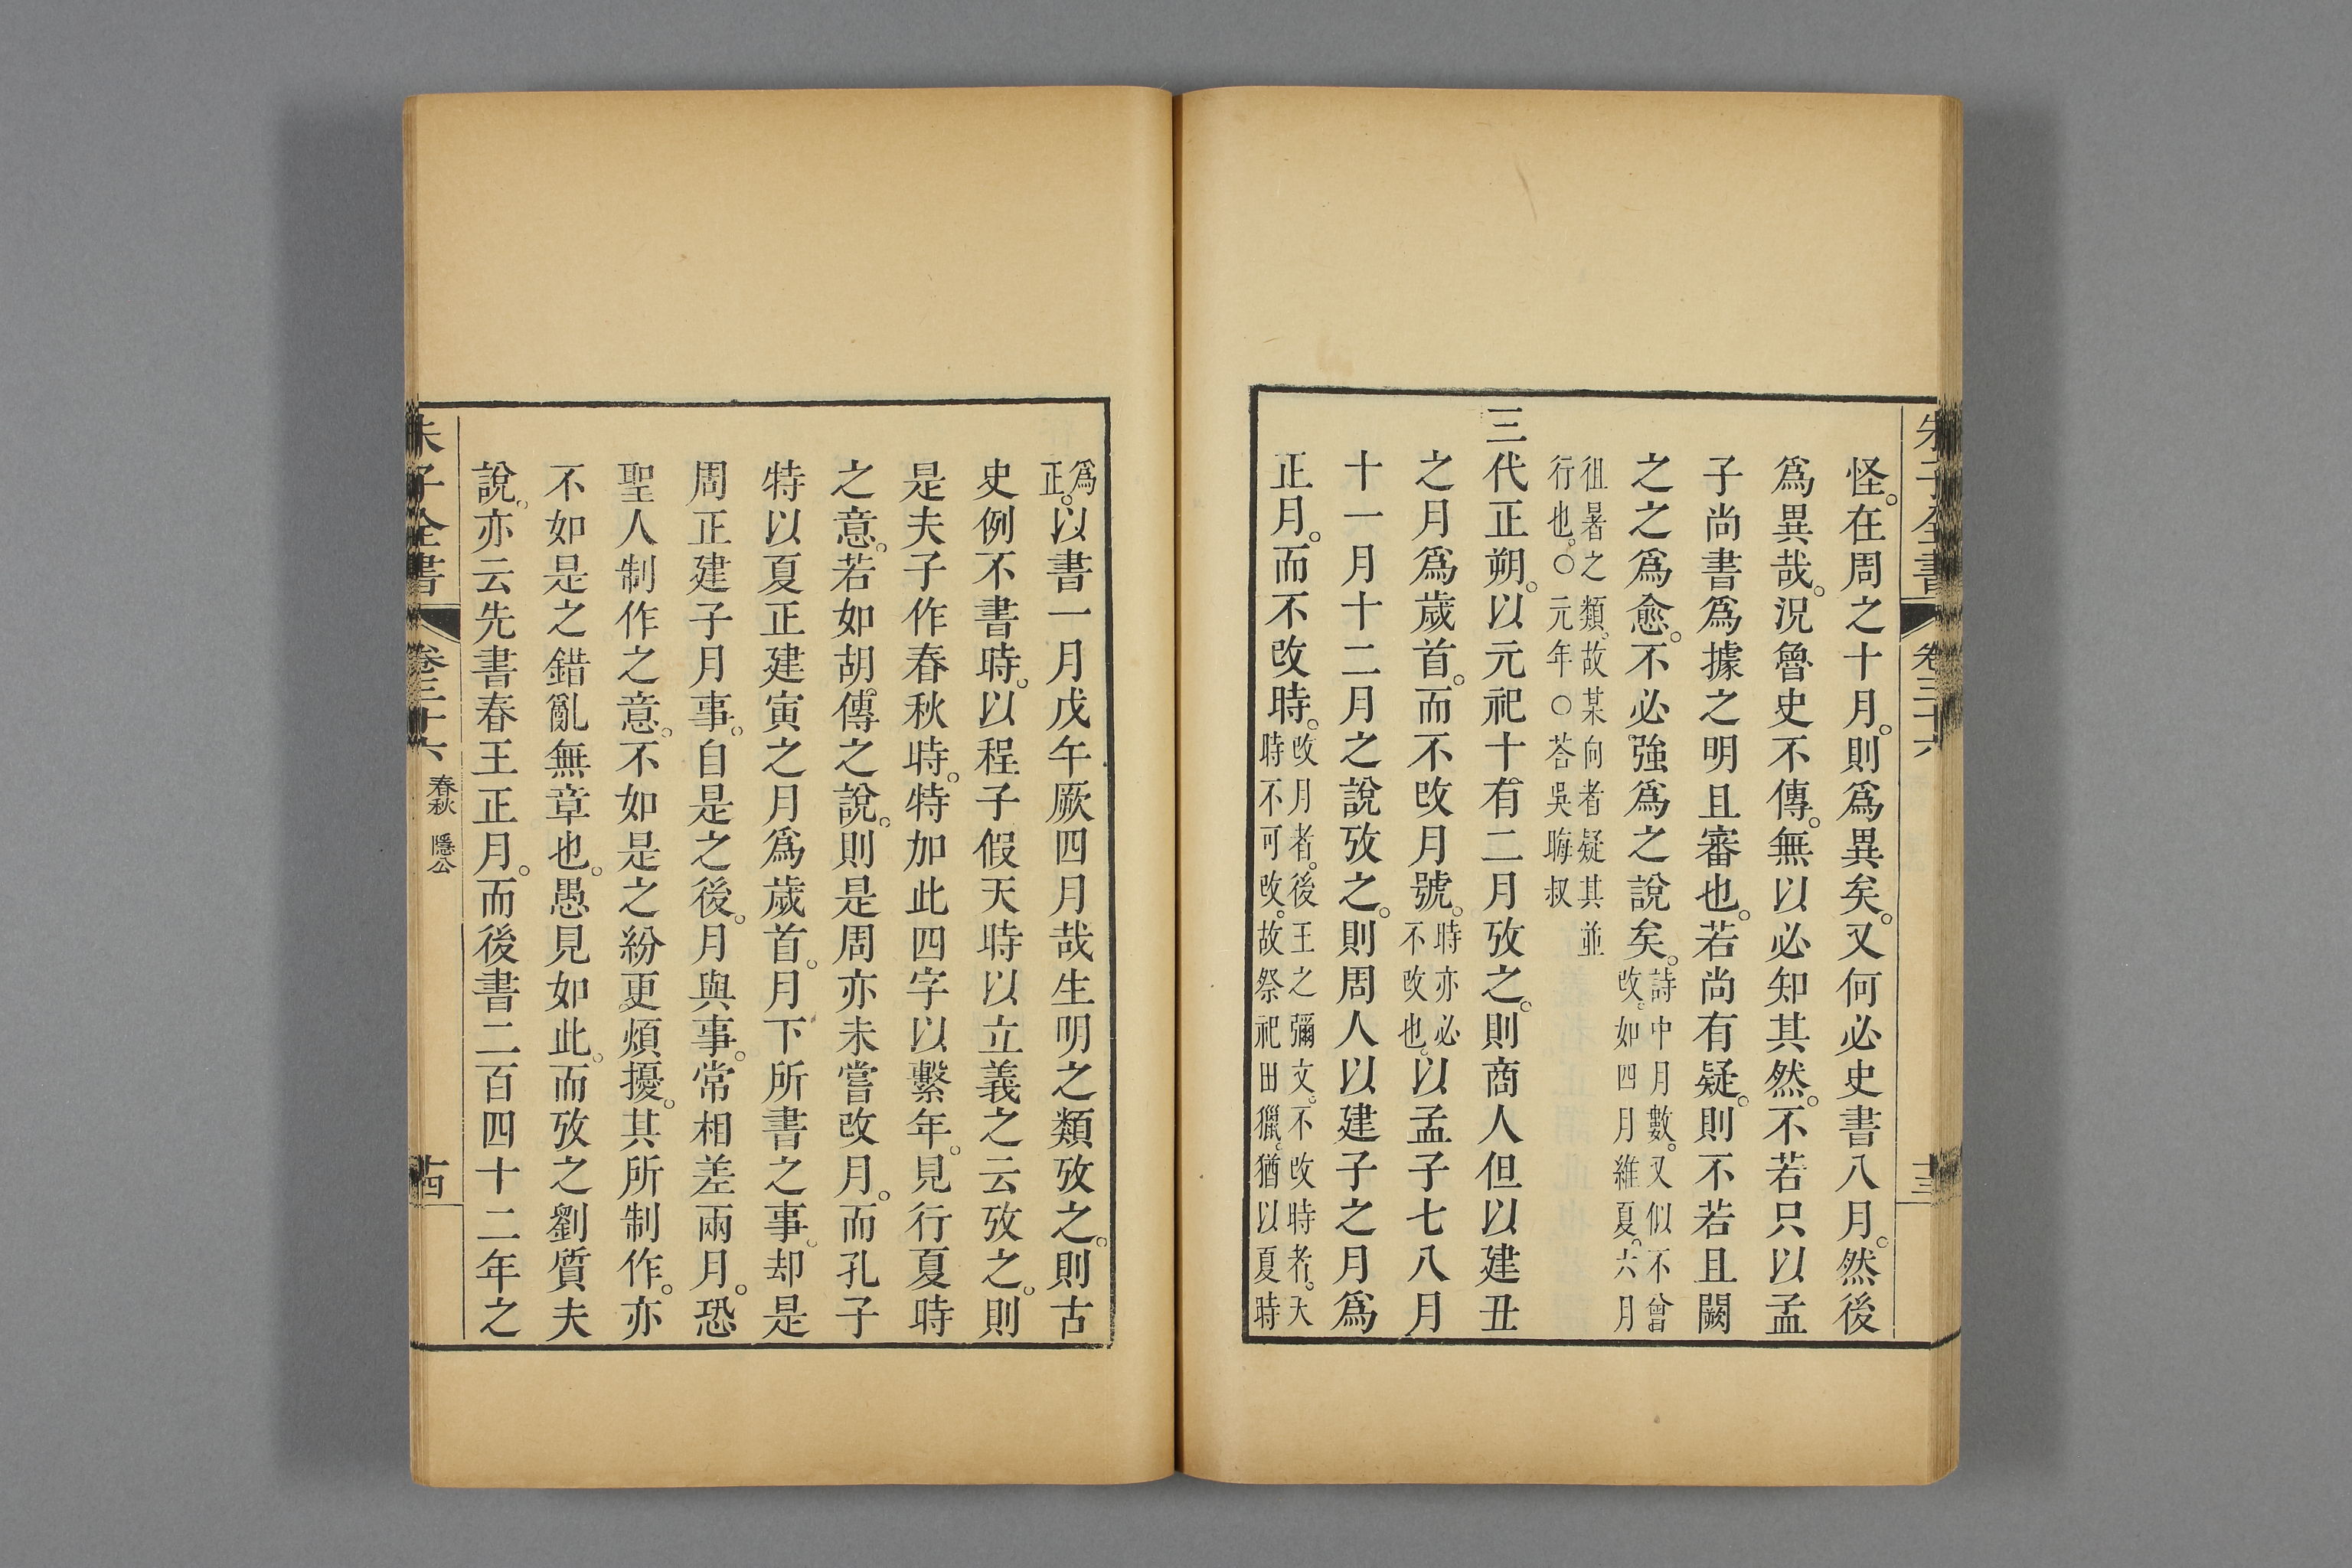 朱子全書 卷三十六 十三
怪。在周之十月。則爲異矣。又何必史書八月。然後
爲異哉。況魯史不傳。無以必知其然。不若只以孟
子尚書爲據之明且審也。若尚有疑。則不若且闕
之之爲愈。不必強爲之說矣。詩中月數。又似不曾改。如四月維夏。六月
徂暑之類。故某向者疑其並行也。○元年○荅吳晦叔
三代正朔。以元祀十有二月攷之。則商人但以建丑
之月爲歲首。而不改月號。時亦必不改也。以孟子七八月
十一月十二月之說攷之。則周人以建子之月爲
正月。而不改時。改月者。後王之彌文。不改時者。天時不可改。故祭祀田獵。猶以夏時
爲正。以書一月戊午厥四月哉生明之類攷之。則古
史例不書時。以程子假天時以立義之云攷之。則
是夫子作春秋時。特加此四字以繫年。見行夏時
之意。若如胡傳之說。則是周亦未嘗改月。而孔子
特以夏正建寅之月爲歲首。月下所書之事。却是
周正建子月事。自是之後。月與事。常相差兩月。恐
聖人制作之意。不如是之紛更煩擾。其所制作。亦
不如是之錯亂無章也。愚見如此。而攷之劉質夫
說。亦云先書春王正月。而後書二百四十二年之
朱子全書 卷三十六 春秋 隱公 十四